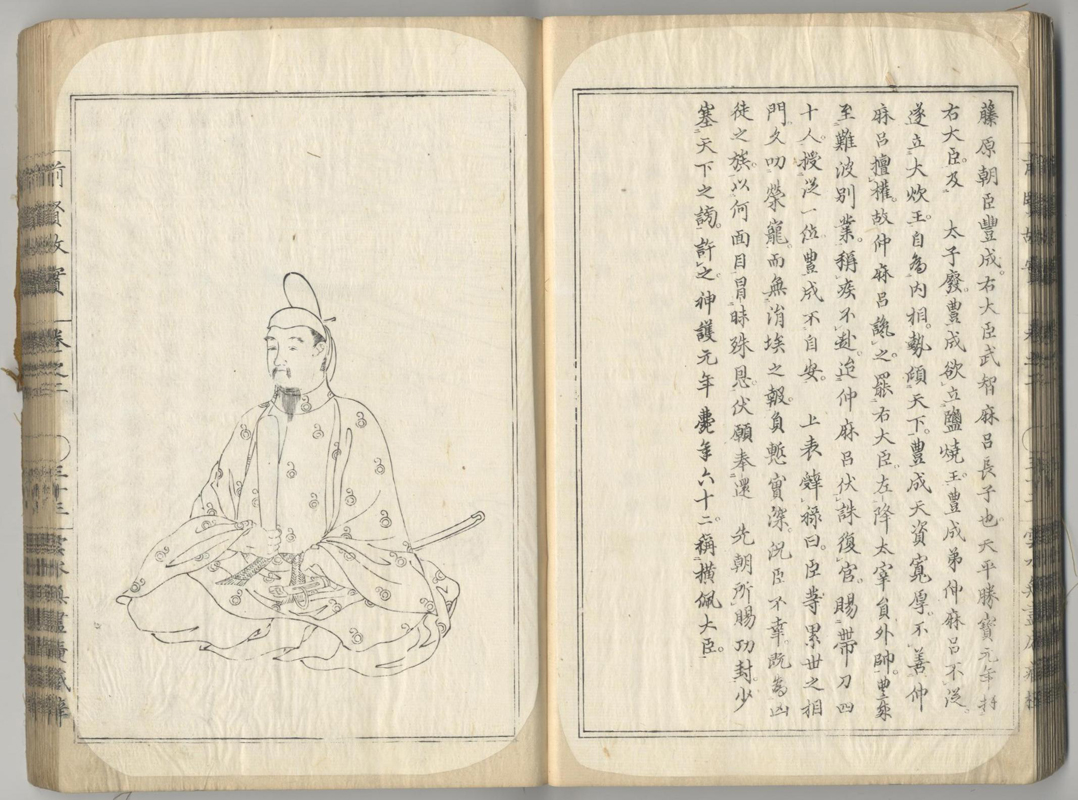 藤原朝臣豐成。右大臣武智麻呂長子也。天平勝寶元年拜
右大臣。及　太子廢。豊成欲立鹽燒王。豊成弟仲麻呂不從。
遂立大炊王。自為内相。勢傾天下。豊成天資寬厚。不善仲
麻呂擅權。故仲麻呂譖之。罷右大臣。左降太宰員外帥。豊成
至難波別業。稱疾不赴。迨仲麻呂伏誅復官。賜帶刀四
十人。授從一位。豊成不自安。　上表辭祿曰。臣等累世之相
門。久叨榮寵。而無涓埃之報。負慙實深。況臣不幸。既為凶
徒之族。以何面目冒昧殊恩。伏願奉還　先朝所賜功封。少
塞天下之謗。許之。神護元年薨。年六十二。稱横佩大臣。
前賢故實
卷之二
三十三